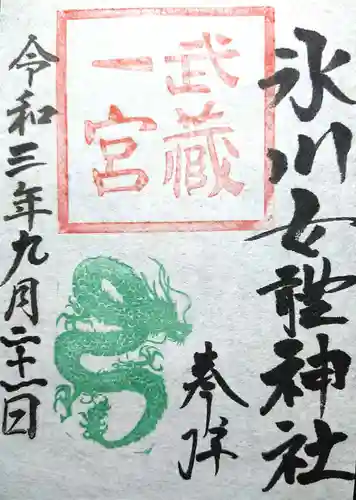 氷川女體神社
奉拝
武藏
一宮
令和三年九月二十一日